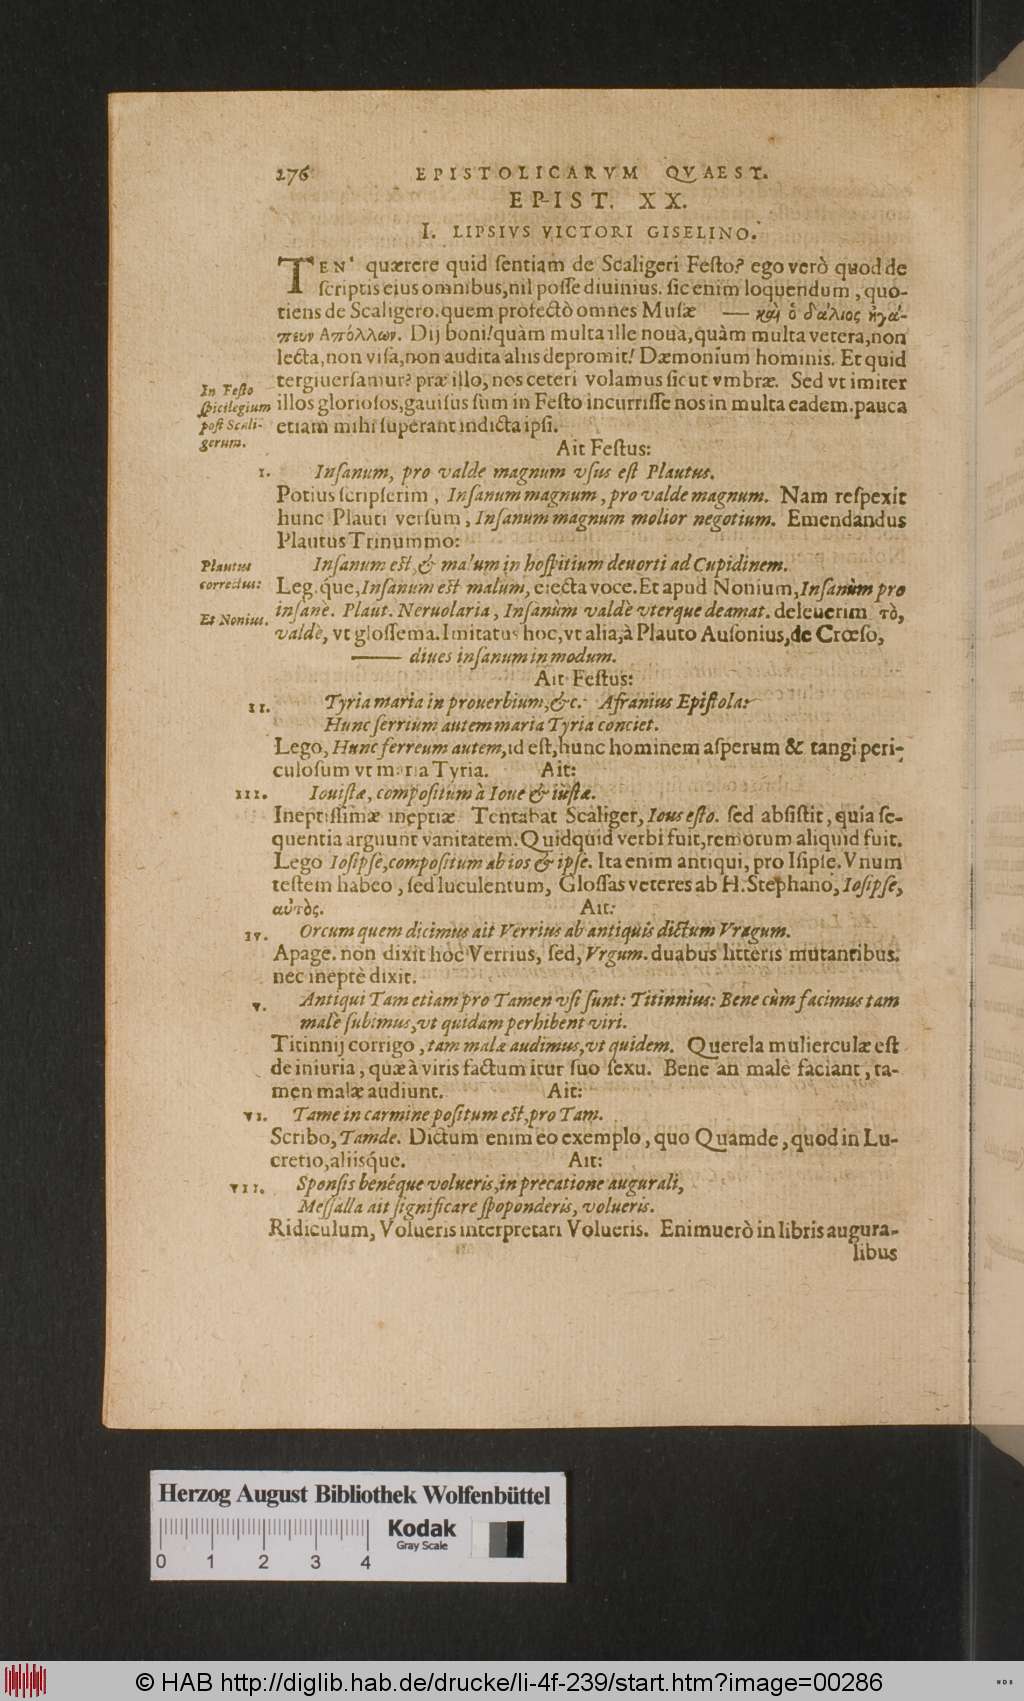 276 EPISTOLICARVM QVAEST.
EPIST. XX.
I. LIPSIVS VICTORI GISELINO.
TEN' quærere quid ſentiam de Scaligeri Feſto? ego verò quod de
ſcriptis ejus omnibus, nil poſſe diuinius. ſic enim loquendum, quo-
tiens de Scaligero. quem profectò omnes Muſæ — καὶ ὁ δάλιος ἠγά-
πευν Απόλλων. Dij boni! quàm multa ille noua, quàm multa vetera, non
lecta, non viſa, non audita aliis depromit! Dæmonium hominis. Et quid
tergiuerſamur? præ illo, nos ceteri volamus ſicut vmbræ. Sed vt imiter
In Feſto
ſpicilegium
poſt Scali-
gerum.
illos glorioſos, gauiſus ſum in Feſto incurriſſe nos in multa eadem. pauca
etiam mihi ſuperant indicta ipſi.
Ait Feſtus:
I. Inſanum, pro valde magnum vſus eſt Plautus.
Potius ſcripſerim, Inſanum magnum, pro valde magnum. Nam reſpexit
hunc Plauti verſum, Inſanum magnum molior negotium. Emendandus
Plautus Trinummo:
Inſanum eſt, & malum in hoſpitium deuorti ad Cupidinem.
Plautus
correctus:
Leg. que, Inſanum eſt malum, eiecta voce. Et apud Nonium, Inſanùm pro
inſanè. Plaut. Neruolaria, Inſanùm valdè vterque deamat. deleuerim τὸ,
Et Nonius.
valdè, vt gloſſema. Imitatus hoc, vt alia, à Plauto Auſonius, de Crœſo,
— diues inſanum in modum.
Ait Feſtus:
II. Tyria maria in prouerbium, &c. Afranius Epiſtola:
Hunc ſerrium autem maria Tyria conciet.
Lego, Hunc ferreum autem, id eſt, hunc hominem aſperum & tangi peri-
culoſum vt maria Tyria. Ait:
III. Iouiſtæ, compoſitum à Ioue & iuſtæ.
Ineptiſſimæ ineptiæ. Tentabat Scaliger, Ious eſto. ſed abſiſtit, quia ſe-
quentia arguunt vanitatem. Quidquid verbi fuit, remotum aliquid fuit.
Lego Ioſipſe, compoſitum ab ios & ipſe. Ita enim antiqui, pro Iſipſe. Vnum
teſtem habeo, ſed luculentum, Gloſſas veteres ab H. Stephano, Ioſipſe,
αὐτὸς. Ait:
IV. Orcum quem dicimus ait Verrius ab antiquis dictum Vragum.
Apage. non dixit hoc Verrius, ſed, Vrgum. duabus litteris mutantibus.
nec ineptè dixit.
V. Antiqui Tam etiam pro Tamen vſi ſunt: Titinnius: Bene cùm facimus tam
malè ſubimus, vt quidam perhibent viri.
Titinnij corrigo, tam malæ audimus, vt quidem. Querela mulierculæ eſt
de iniuria, quæ à viris factum itur ſuo ſexu. Bene an malè faciant, ta-
men malæ audiunt. Ait:
VI. Tame in carmine poſitum eſt, pro Tam.
Scribo, Tamde. Dictum enim eo exemplo, quo Quamde, quod in Lu-
cretio, aliisque. Ait:
VII. Sponſis benéque volueris, in precatione augurali,
Meſſalla ait ſignificare ſpoponderis, volueris.
Ridiculum, Volueris interpretari Volueris. Enimuerò in libris augura-
libus
Herzog August Bibliothek Wolfenbüttel
Kodak
Gray Scale
0 1 2 3 4
© HAB http://diglib.hab.de/drucke/li-4f-239/start.htm?image=00286